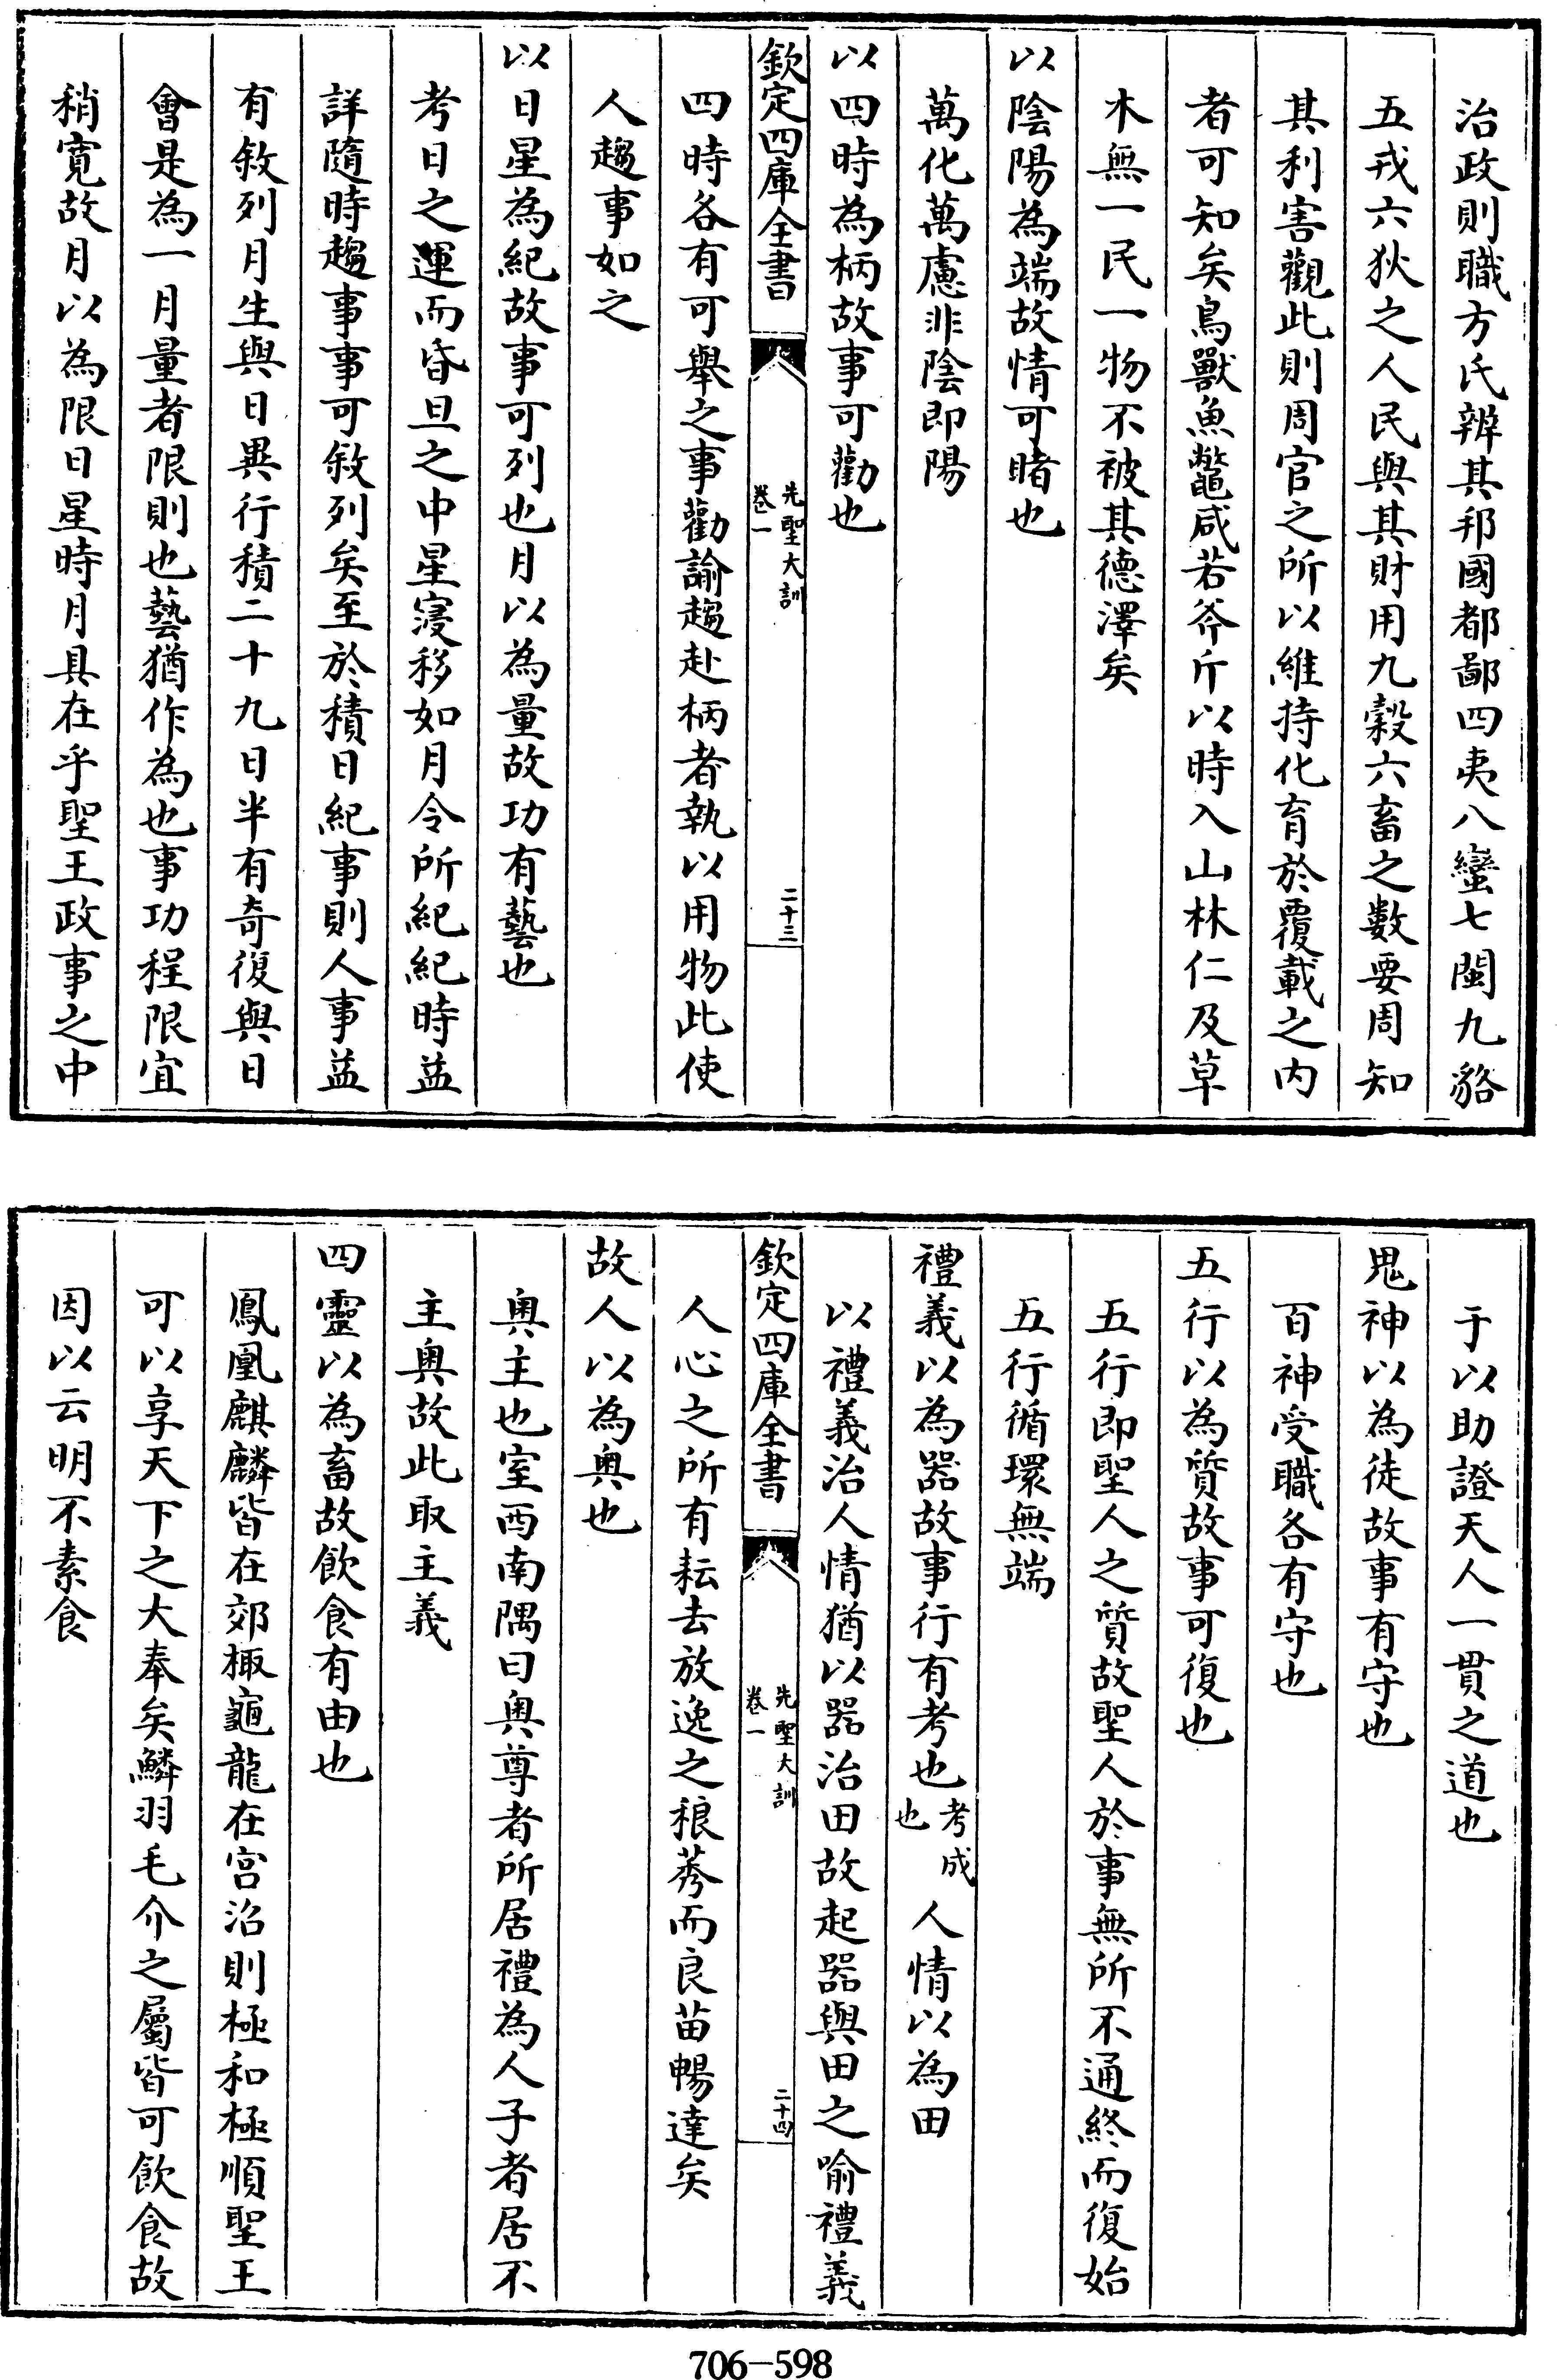 治政則職方氏辨其邦國都鄙四夷八蠻七閩九貉
五戎六狄之人民與其財用九穀六畜之數要周知
其利害觀此則周官之所以維持化育於覆載之内
者可知矣鳥獸魚鼈咸若斧斤以時入山林仁及草
木無一民一物不被其德澤矣
以陰陽為端故情可睹也
萬化萬慮非陰即陽
以四時為柄故事可勸也
欽定四庫全書
先聖大訓
卷一
二十三
四時各有可舉之事勸諭趨赴柄者執以用物此使
人趨事如之
以日星為紀故事可列也月以為量故功有藝也
考日之運而昏旦之中星寖移如月令所紀紀時益
詳隨時趨事事可敘列矣至於積日紀事則人事益
有敘列月生與日異行積二十九日半有奇復與日
會是為一月量者限則也藝猶作為也事功程限宜
稍寛故月以為限日星時月具在乎聖王政事之中
于以助證天人一貫之道也
鬼神以為徒故事有守也
百神受職各有守也
五行以為質故事可復也
五行即聖人之質故聖人於事無所不通終而復始
五行循環無端
禮義以為器故事行有考也考成也人情以為田
以禮義治人情猶以器治田故起器與田之喻禮義
欽定四庫全書
先聖大訓
卷一
二十四
人心之所有耘去放逸之稂莠而良苗暢達矣
故人以為奥也
奥主也室西南隅曰奥尊者所居禮為人子者居不
主奥故此取主義
四靈以為畜故飲食有由也
鳳凰麒麟皆在郊棷龜龍在宫沼則極和極順聖王
可以享天下之大奉矣鱗羽毛介之屬皆可飲食故
因以云明不素食
706-598